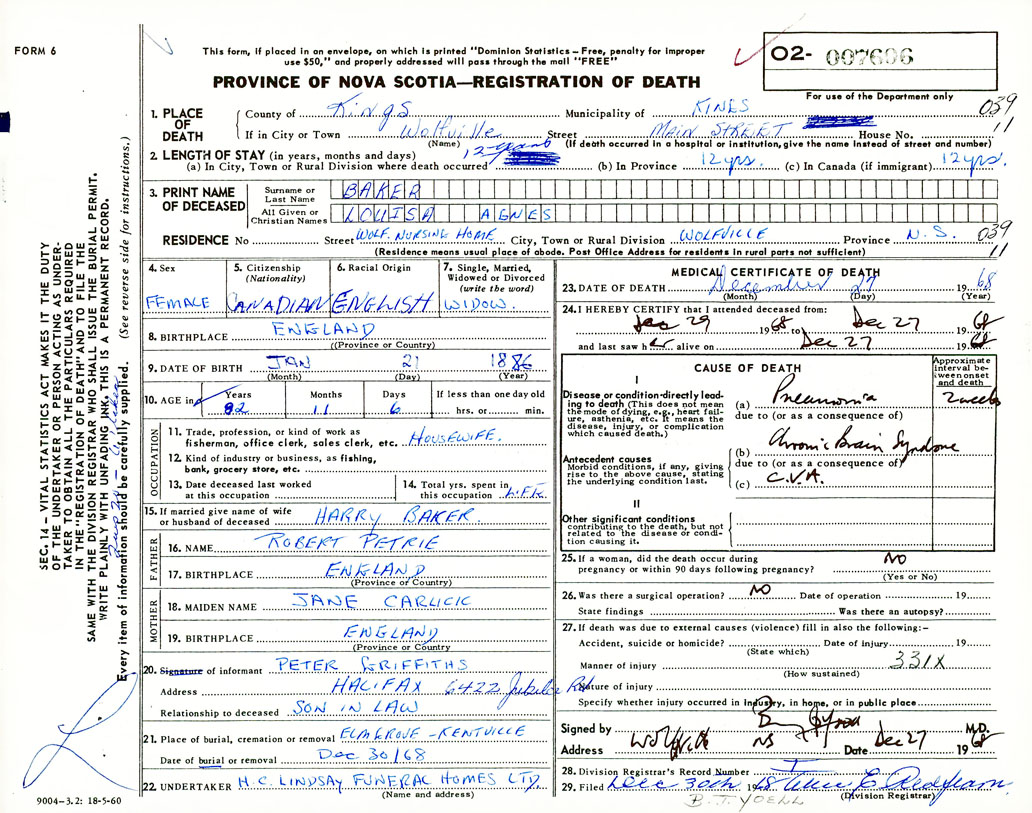 FORM 6
This form, if placed in an envelope, on which is printed "Dominion Statistics – Free, penalty for improper
use $50," and properly addressed will pass through the mail "FREE"
O2- 007696
PROVINCE OF NOVA SCOTIA—REGISTRATION OF DEATH
For use of the Department only
1. PLACE OF DEATH
County of Kings Municipality of KINGS 039
If in City or Town Wolfville Street MAIN STREET House No. 11
(Name) (If death occurred in a hospital or institution, give the name instead of street and number)
2. LENGTH OF STAY (in years, months and days)
(a) In City, Town or Rural Division where death occurred 12 years (b) In Province 12 yrs. (c) In Canada (if immigrant) 12 yrs.
3. PRINT NAME OF DECEASED
Surname or Last Name BAKER
All Given or Christian Names LOUISA AGNES
RESIDENCE No Street WOLF. NURSING HOME City, Town or Rural Division WOLFVILLE Province N.S. 039
(Residence means usual place of abode. Post Office Address for residents in rural parts not sufficient) 11
4. Sex FEMALE
5. Citizenship (Nationality) CANADIAN
6. Racial Origin ENGLISH
7. Single, Married, Widowed or Divorced (write the word) WIDOW.
8. BIRTHPLACE ENGLAND
(Province or Country)
9. DATE OF BIRTH JAN 21 1886
(Month) (Day) (Year)
10. AGE in Years 82 Months 11 Days 6 If less than one day old hrs. or min.
OCCUPATION
11. Trade, profession, or kind of work as
fisherman, office clerk, sales clerk, etc. HOUSEWIFE.
12. Kind of industry or business, as fishing,
bank, grocery store, etc.
13. Date deceased last worked
at this occupation
14. Total yrs. spent in
this occupation LIFE.
15. If married give name of wife
or husband of deceased HARRY BAKER.
FATHER
16. NAME ROBERT PETRIE
17. BIRTHPLACE ENGLAND
(Province or Country)
MOTHER
18. MAIDEN NAME JANE CARLICK
19. BIRTHPLACE ENGLAND
(Province or Country)
20. Signature of informant PETER GRIFFITHS
Address HALIFAX 6422 Jubilee Rd
Relationship to deceased SON IN LAW
21. Place of burial, cremation or removal ELM GROVE - KENTVILLE
Date of burial or removal Dec 30/68
22. UNDERTAKER H.C. LINDSAY FUNERAL HOMES LTD.
(Name and address)
MEDICAL CERTIFICATE OF DEATH
23. DATE OF DEATH December 27 1968
(Month) (Day) (Year)
24. I HEREBY CERTIFY that I attended deceased from:
29 1968 to Dec 27 1968
and last saw her alive on Dec 27 1968
CAUSE OF DEATH
Approximate interval between onset and death
I
Disease or condition directly leading
to death (This does not mean
the mode of dying, e.g., heart failure,
asthenia, etc. It means the
disease, injury, or complication
which caused death.)
(a) Pneumonia 2 weeks
due to (or as a consequence of)
Antecedent causes
Morbid conditions, if any, giving
rise to the above cause, stating
the underlying condition last.
(b) Chronic Brain Syndrome
due to (or as a consequence of)
(c) C.V.A.
II
Other significant conditions
contributing to the death, but not
related to the disease or condition
causing it.
25. If a woman, did the death occur during
pregnancy or within 90 days following pregnancy? NO
(Yes or No)
26. Was there a surgical operation? NO Date of operation 19
State findings Was there an autopsy?
27. If death was due to external causes (violence) fill in also the following:–
Accident, suicide or homicide? Date of injury 19
(State which)
Manner of injury 331X
(How sustained)
Nature of injury
Specify whether injury occurred in Industry, in home, or in public place
Signed by M.D.
Address Wolfville NS Date Dec 27 1968
28. Division Registrar's Record Number
29. Filed Dec 30th 1968
(Division Registrar)
B.T. YOELL
SEC. 14 – VITAL STATISTICS ACT MAKES IT THE DUTY
OF THE UNDERTAKER OR PERSON ACTING AS UNDER-
TAKER TO OBTAIN ALL THE PARTICULARS REQUIRED
IN THE "REGISTRATION OF DEATH" AND TO FILE THE
SAME WITH THE DIVISION REGISTRAR WHO SHALL ISSUE THE BURIAL PERMIT.
WRITE PLAINLY WITH UNFADING INK, THIS IS A PERMANENT RECORD.
Every item of information should be carefully supplied. (See reverse side for instructions.)
9004–3.2: 18-5-60